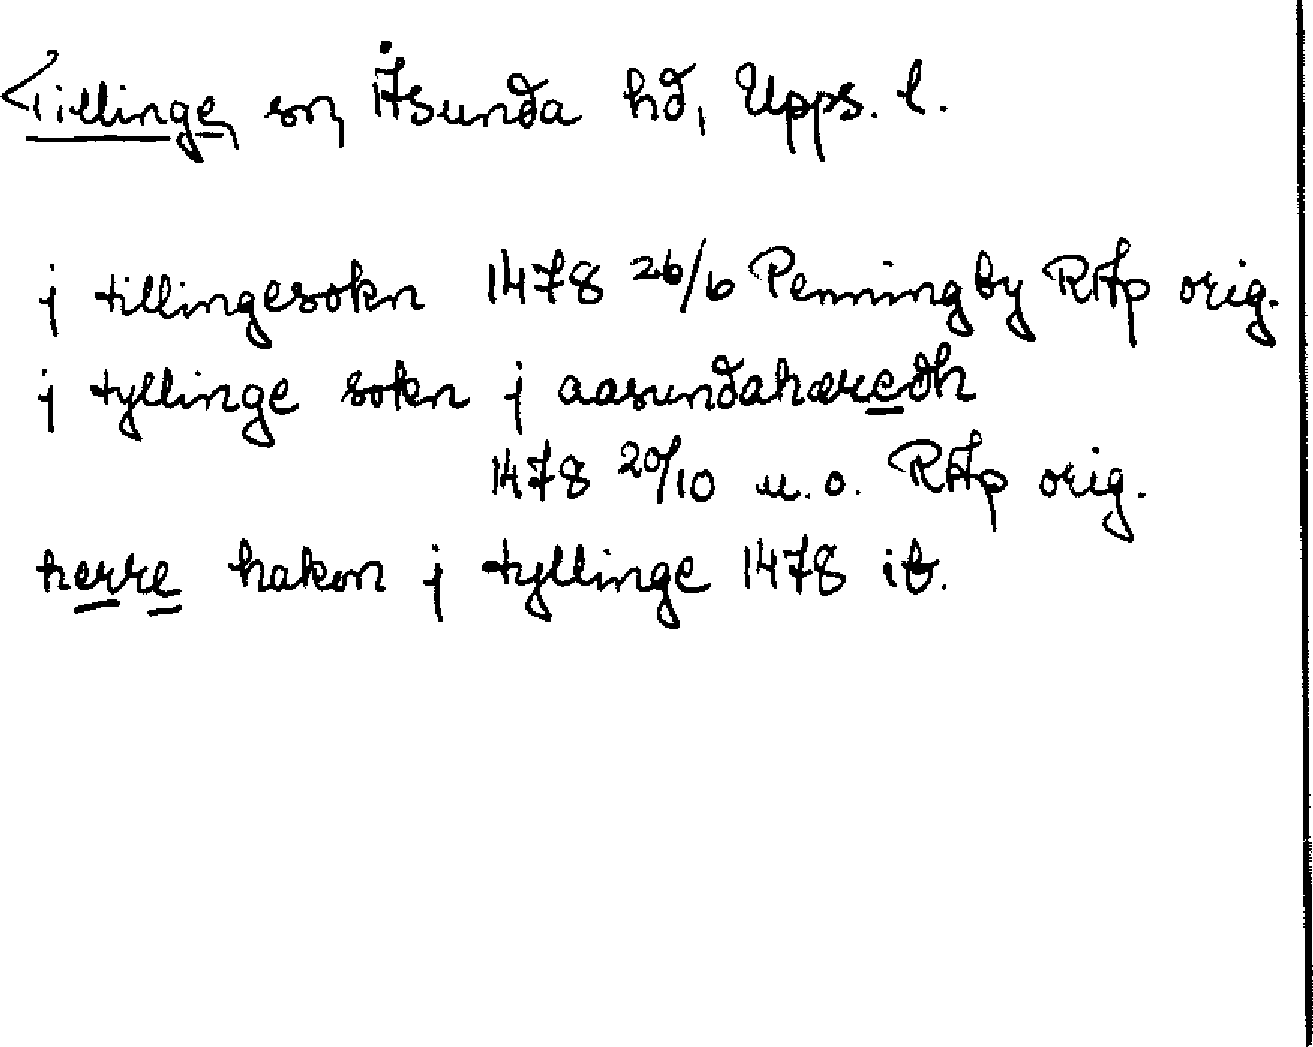 Tillinge, sn, Åsunda hd, Upps. l.
j tillingesokn 1478 26/6 Penningby RAp orig.
j tyllinge sokn j aasundahæredh
1478 20/10 u. o. RAp orig.
herre hakon j tyllinge 1478 ib.